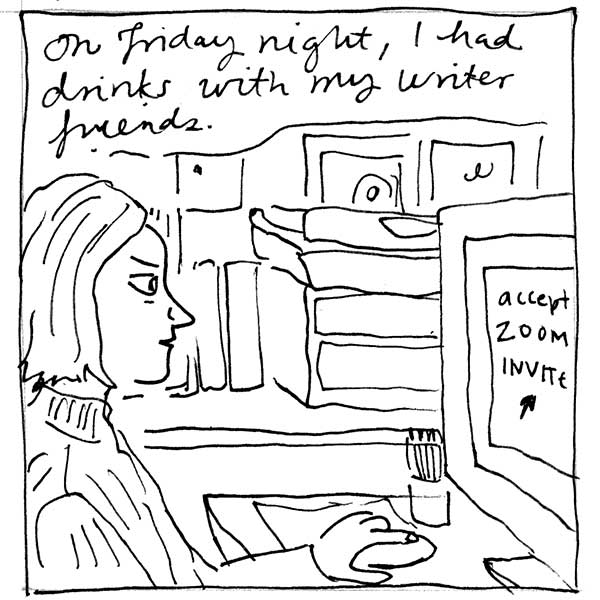 On Friday night, I had
drinks with my writer
friends.
accept
ZOOM
INVITE